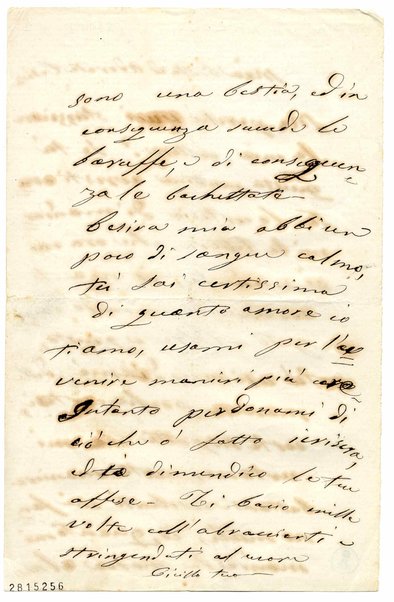 sono una bestia, ed in
conseguenza succede le
baruffe, e di conseguen=
za le bachettate -
Cesira mia abbi un
poco di sangue calmo,
tu sai certissima
di quanto amore io
t'iamo, usami per l'av
venire manieri più care -
Intanto perdonami di
ciò che ó fatto ierisera,
ed io dimendico le tue
affise - Ti bacio mille
volte coll'abracciarti e
stringendoti al cuore
tuo
2815256